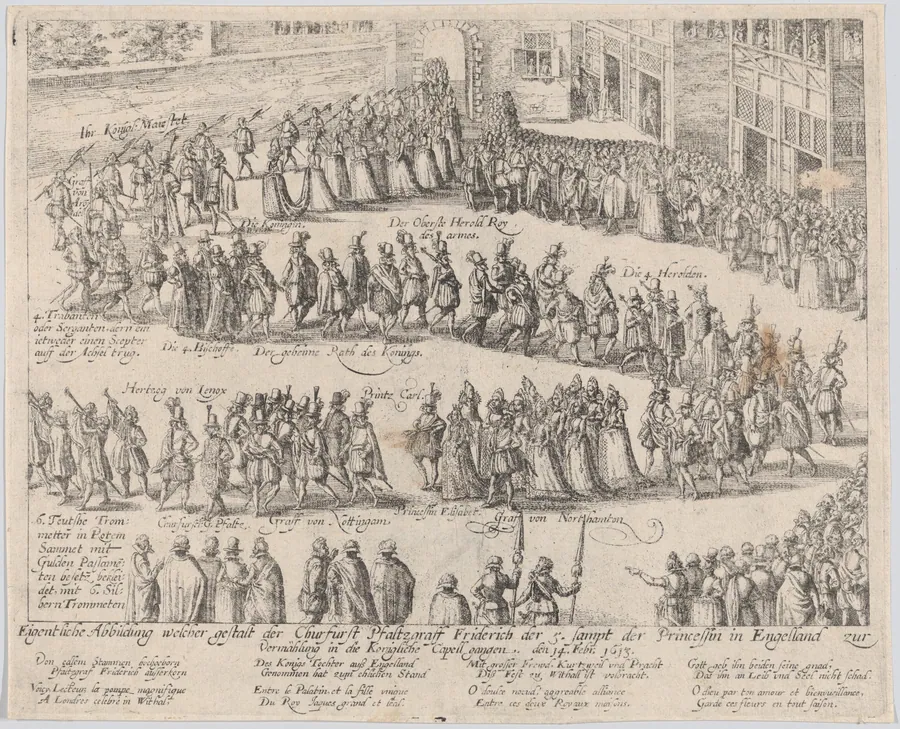 Ihr Königl: Maiestet
Graf
von
Die Königin.
Der Oberste Herold Roy
des armes.
Die 4 Herolden.
4. Trabanten
oder Serganten, dern ein
ietweder einen Scepter
auff der Achsel trug.
Die 4. Bischoffe.
Der geheime Rath des Königs.
Hertzog von Lenox
Printz Carl.
6. Teutsche Trom:
metter in Rotem
Sammet mit
Gulden Passame:
ten besetz beklei:
det mit 6. Sil:
bern Trommeten
Churfurst G. Pfaltz.
Graff von Nottingam
Princessin Elisabet.
Graf von Northamton
Eigentliche Abbildung welcher gestalt der Churfurst Pfaltzgraff Friderich der 5. sampt der Princessin in Engelland zur
Vermählung in die Königliche Capell gangen. den 14. Febr. 1613.
Von Stammen hochgeborn
Pfaltzgraf Friderich außerkorn
Des Königs Tochter auß Engelland
Genommen hat zum ehlichen Stand
Mit grosser Frewd, Kurtzweil vnd Pracht
Diß Fest zu Withall ist volbracht.
Gott geb ihn beiden seine gnad,
Das ihn an Leib vnd Seel nicht schad.
Voicy Lecteur la pompe magnifique
A Londres celebré in Withal.
Entre le Palatin, et la fille vnique
Du Roy Jaques grand et
O douce noeud, aggreable alliance
Entre ces deux Royaux maisons.
O dieu par ton amour et bienvueillance,
Garde ces fleurs en tout saison.